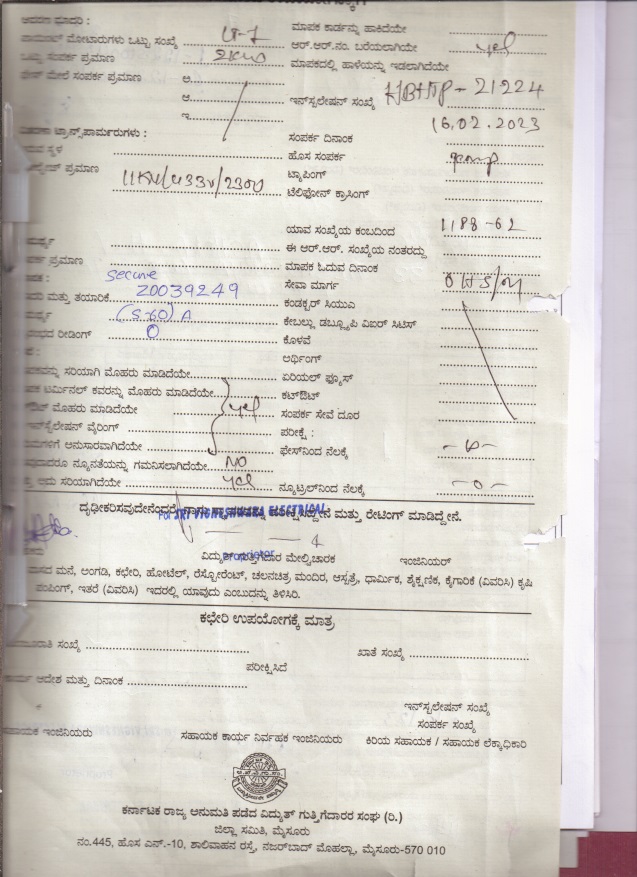 ಮಾಪಕ ಕಾರ್ಡನ್ನು ಹಾಕಿದೆಯೇ
ಮೋಟಾರುಗಳು ಒಟ್ಟು ಸಂಖ್ಯೆ ಆರ್.ಆರ್.ನಂ. ಬರೆಯಲಾಗಿಯೇ yes
ಸಂಪರ್ಕ ಪ್ರಮಾಣ 2KW ಮಾಪಕದಲ್ಲಿ ಹಾಳೆಯನ್ನು ಇಡಲಾಗಿದೆಯೇ
ಮೇಲೆ ಸಂಪರ್ಕ ಪ್ರಮಾಣ ಅ.
ಆ. ಇನ್‌ಸ್ಟಲೇಷನ್ ಸಂಖ್ಯೆ - 21224
ಇ. 16.02.2023
ಟ್ರಾನ್ಸ್‌ಫಾರ್ಮರುಗಳು : ಸಂಪರ್ಕ ದಿನಾಂಕ
ಸ್ಥಳ ಹೊಸ ಸಂಪರ್ಕ
ಪ್ರಮಾಣ 11KV/433V/230V ಟ್ಯಾಪಿಂಗ್
ಟೆಲಿಫೋನ್ ಕ್ರಾಸಿಂಗ್
ಯಾವ ಸಂಖ್ಯೆಯ ಕಂಬದಿಂದ
ಈ ಆರ್.ಆರ್. ಸಂಖ್ಯೆಯ ನಂತರದ್ದು
ಪ್ರಮಾಣ ಮಾಪಕ ಓದುವ ದಿನಾಂಕ
secure ಸೇವಾ ಮಾರ್ಗ
ಮತ್ತು ತಯಾರಿಕೆ Z0039249 ಕಂಡಕ್ಟರ್ ಸಿಯುಎ
(5-60) A ಕೇಬಲ್ಲು ಡಬ್ಲ್ಯೂಪಿ ವಿಐರ್ ಸಿಟಿಸ್
ರೀಡಿಂಗ್ 0 ಕೊಳವೆ
ಅರ್ಥಿಂಗ್
ಸರಿಯಾಗಿ ಮೊಹರು ಮಾಡಿದೆಯೇ ಏರಿಯಲ್ ಫ್ಯೂಸ್
ಟರ್ಮಿನಲ್ ಕವರನ್ನು ಮೊಹರು ಮಾಡಿದೆಯೇ ಕಟ್‌ಔಟ್
ಮೊಹರು ಮಾಡಿದೆಯೇ yes ಸಂಪರ್ಕ ಸೇವೆ ದೂರ
ವೈರಿಂಗ್ ಪರೀಕ್ಷೆ :
ಅನುಸಾರವಾಗಿದೆಯೇ ಫೇಸ್‌ನಿಂದ ನೆಲಕ್ಕೆ
ನ್ಯೂನತೆಯನ್ನು ಗಮನಿಸಲಾಗಿದೆಯೇ NO
ಅದು ಸರಿಯಾಗಿದೆಯೇ yes ನ್ಯೂಟ್ರಲ್‌ನಿಂದ ನೆಲಕ್ಕೆ —0—
ದೃಢೀಕರಿಸುವುದೇನೆಂದರೆ ಮತ್ತು ರೇಟಿಂಗ್ ಮಾಡಿದ್ದೇನೆ.
For SRI ELECTRICAL
Proprietor
ಮೇಲ್ವಿಚಾರಕ ಇಂಜಿನಿಯರ್
ಮನೆ, ಅಂಗಡಿ, ಕಛೇರಿ, ಹೋಟೆಲ್, ರೆಸ್ಟೋರೆಂಟ್, ಚಲನಚಿತ್ರ ಮಂದಿರ, ಆಸ್ಪತ್ರೆ, ಧಾರ್ಮಿಕ, ಶೈಕ್ಷಣಿಕ, ಕೈಗಾರಿಕೆ (ವಿವರಿಸಿ) ಕೃಷಿ
ಪಂಪಿಂಗ್, ಇತರೆ (ವಿವರಿಸಿ) ಇದರಲ್ಲಿ ಯಾವುದು ಎಂಬುದನ್ನು ತಿಳಿಸಿರಿ.
ಕಛೇರಿ ಉಪಯೋಗಕ್ಕೆ ಮಾತ್ರ
ಸಂಖ್ಯೆ ಖಾತೆ ಸಂಖ್ಯೆ
ಪರೀಕ್ಷಿಸಿದೆ
ಆದೇಶ ಮತ್ತು ದಿನಾಂಕ
ಇನ್‌ಸ್ಟಲೇಷನ್ ಸಂಖ್ಯೆ
ಸಂಪರ್ಕ ಸಂಖ್ಯೆ
ಸಹಾಯಕ ಇಂಜಿನಿಯರು ಸಹಾಯಕ ಕಾರ್ಯ ನಿರ್ವಾಹಕ ಇಂಜಿನಿಯರು ಕಿರಿಯ ಸಹಾಯಕ / ಸಹಾಯಕ ಲೆಕ್ಕಾಧಿಕಾರಿ
ಕರ್ನಾಟಕ ರಾಜ್ಯ ಅನುಮತಿ ಪಡೆದ ವಿದ್ಯುತ್ ಗುತ್ತಿಗೆದಾರರ ಸಂಘ (ರಿ.)
ಜಿಲ್ಲಾ ಸಮಿತಿ, ಮೈಸೂರು
ನಂ.445, ಹೊಸ ಎನ್.-10, ಶಾಲಿವಾಹನ ರಸ್ತೆ, ನಜರ್‌ಬಾದ್ ಮೊಹಲ್ಲಾ, ಮೈಸೂರು-570 010